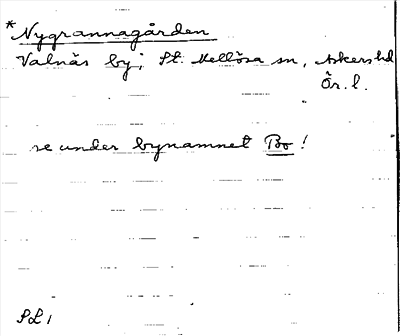 *Nygrannagården
Valnäs by; St. Mellösa sn, Askers hd
Ör. l.
se under bynamnet Bo!
SL1